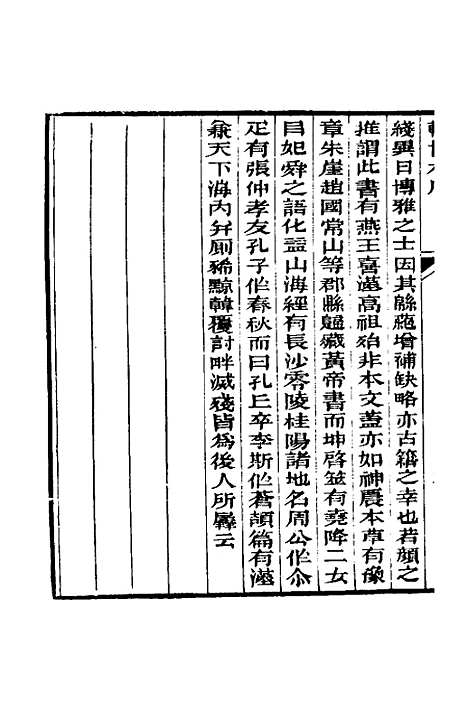 綫異日博雅之士因其緜蕝增補缺略亦古籍之幸也若顔之
推謂此書有燕王喜漢高祖殆非本文蓋亦如神農本草有豫
章朱崖趙國常山等郡縣歸藏黃帝書而坤啓筮有堯降二女
目妃舜之語伯益山海經有長沙零陵桂陽諸地名周公作尒
疋有張仲孝友孔子作春秋而曰孔丘卒李斯作蒼頡篇有漢
兼天下海內并廁豨黥韓覆討畔滅殘皆爲後人所羼云